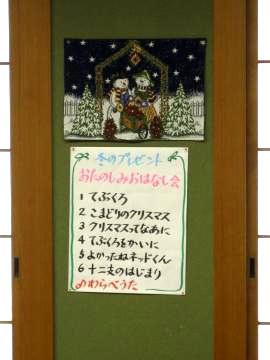 冬のプレゼント
おたのしみおはなし会
1 てぶくろ
2 こまどりのクリスマス
3 クリスマスってなあに
4 てぶくろをかいに
5 よかったねネッドくん
6 十二支のはじまり
わらべうた